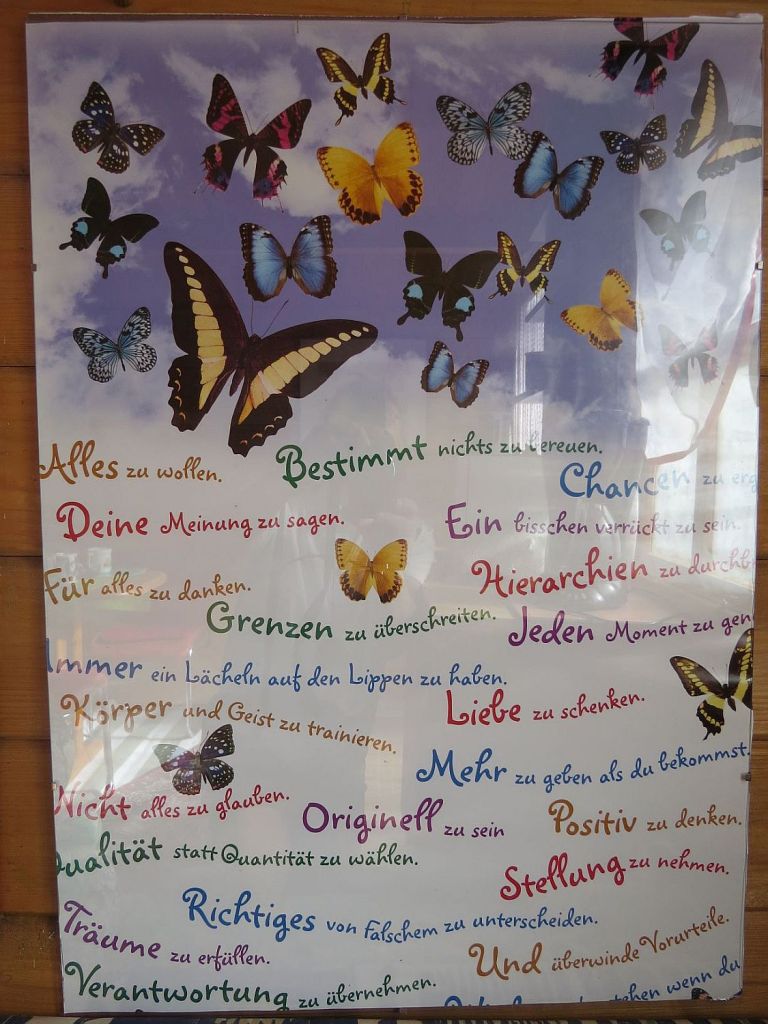 Alles zu wollen.
Bestimmt nichts zu bereuen.
Chancen zu
Deine Meinung zu sagen.
Ein bisschen verrückt zu sein.
Für alles zu danken.
Hierarchien zu
Grenzen zu überschreiten.
Jeden Moment zu
Immer ein Lächeln auf den Lippen zu haben.
Körper und Geist zu trainieren.
Liebe zu schenken.
Mehr zu geben als du bekommst.
Nicht alles zu glauben.
Originell zu sein
Positiv zu denken.
Qualität statt Quantität zu wählen.
Stellung zu nehmen.
Richtiges von Falschem zu unterscheiden.
Träume zu erfüllen.
Und überwinde Vorurteile.
Verantwortung zu übernehmen.
wenn du